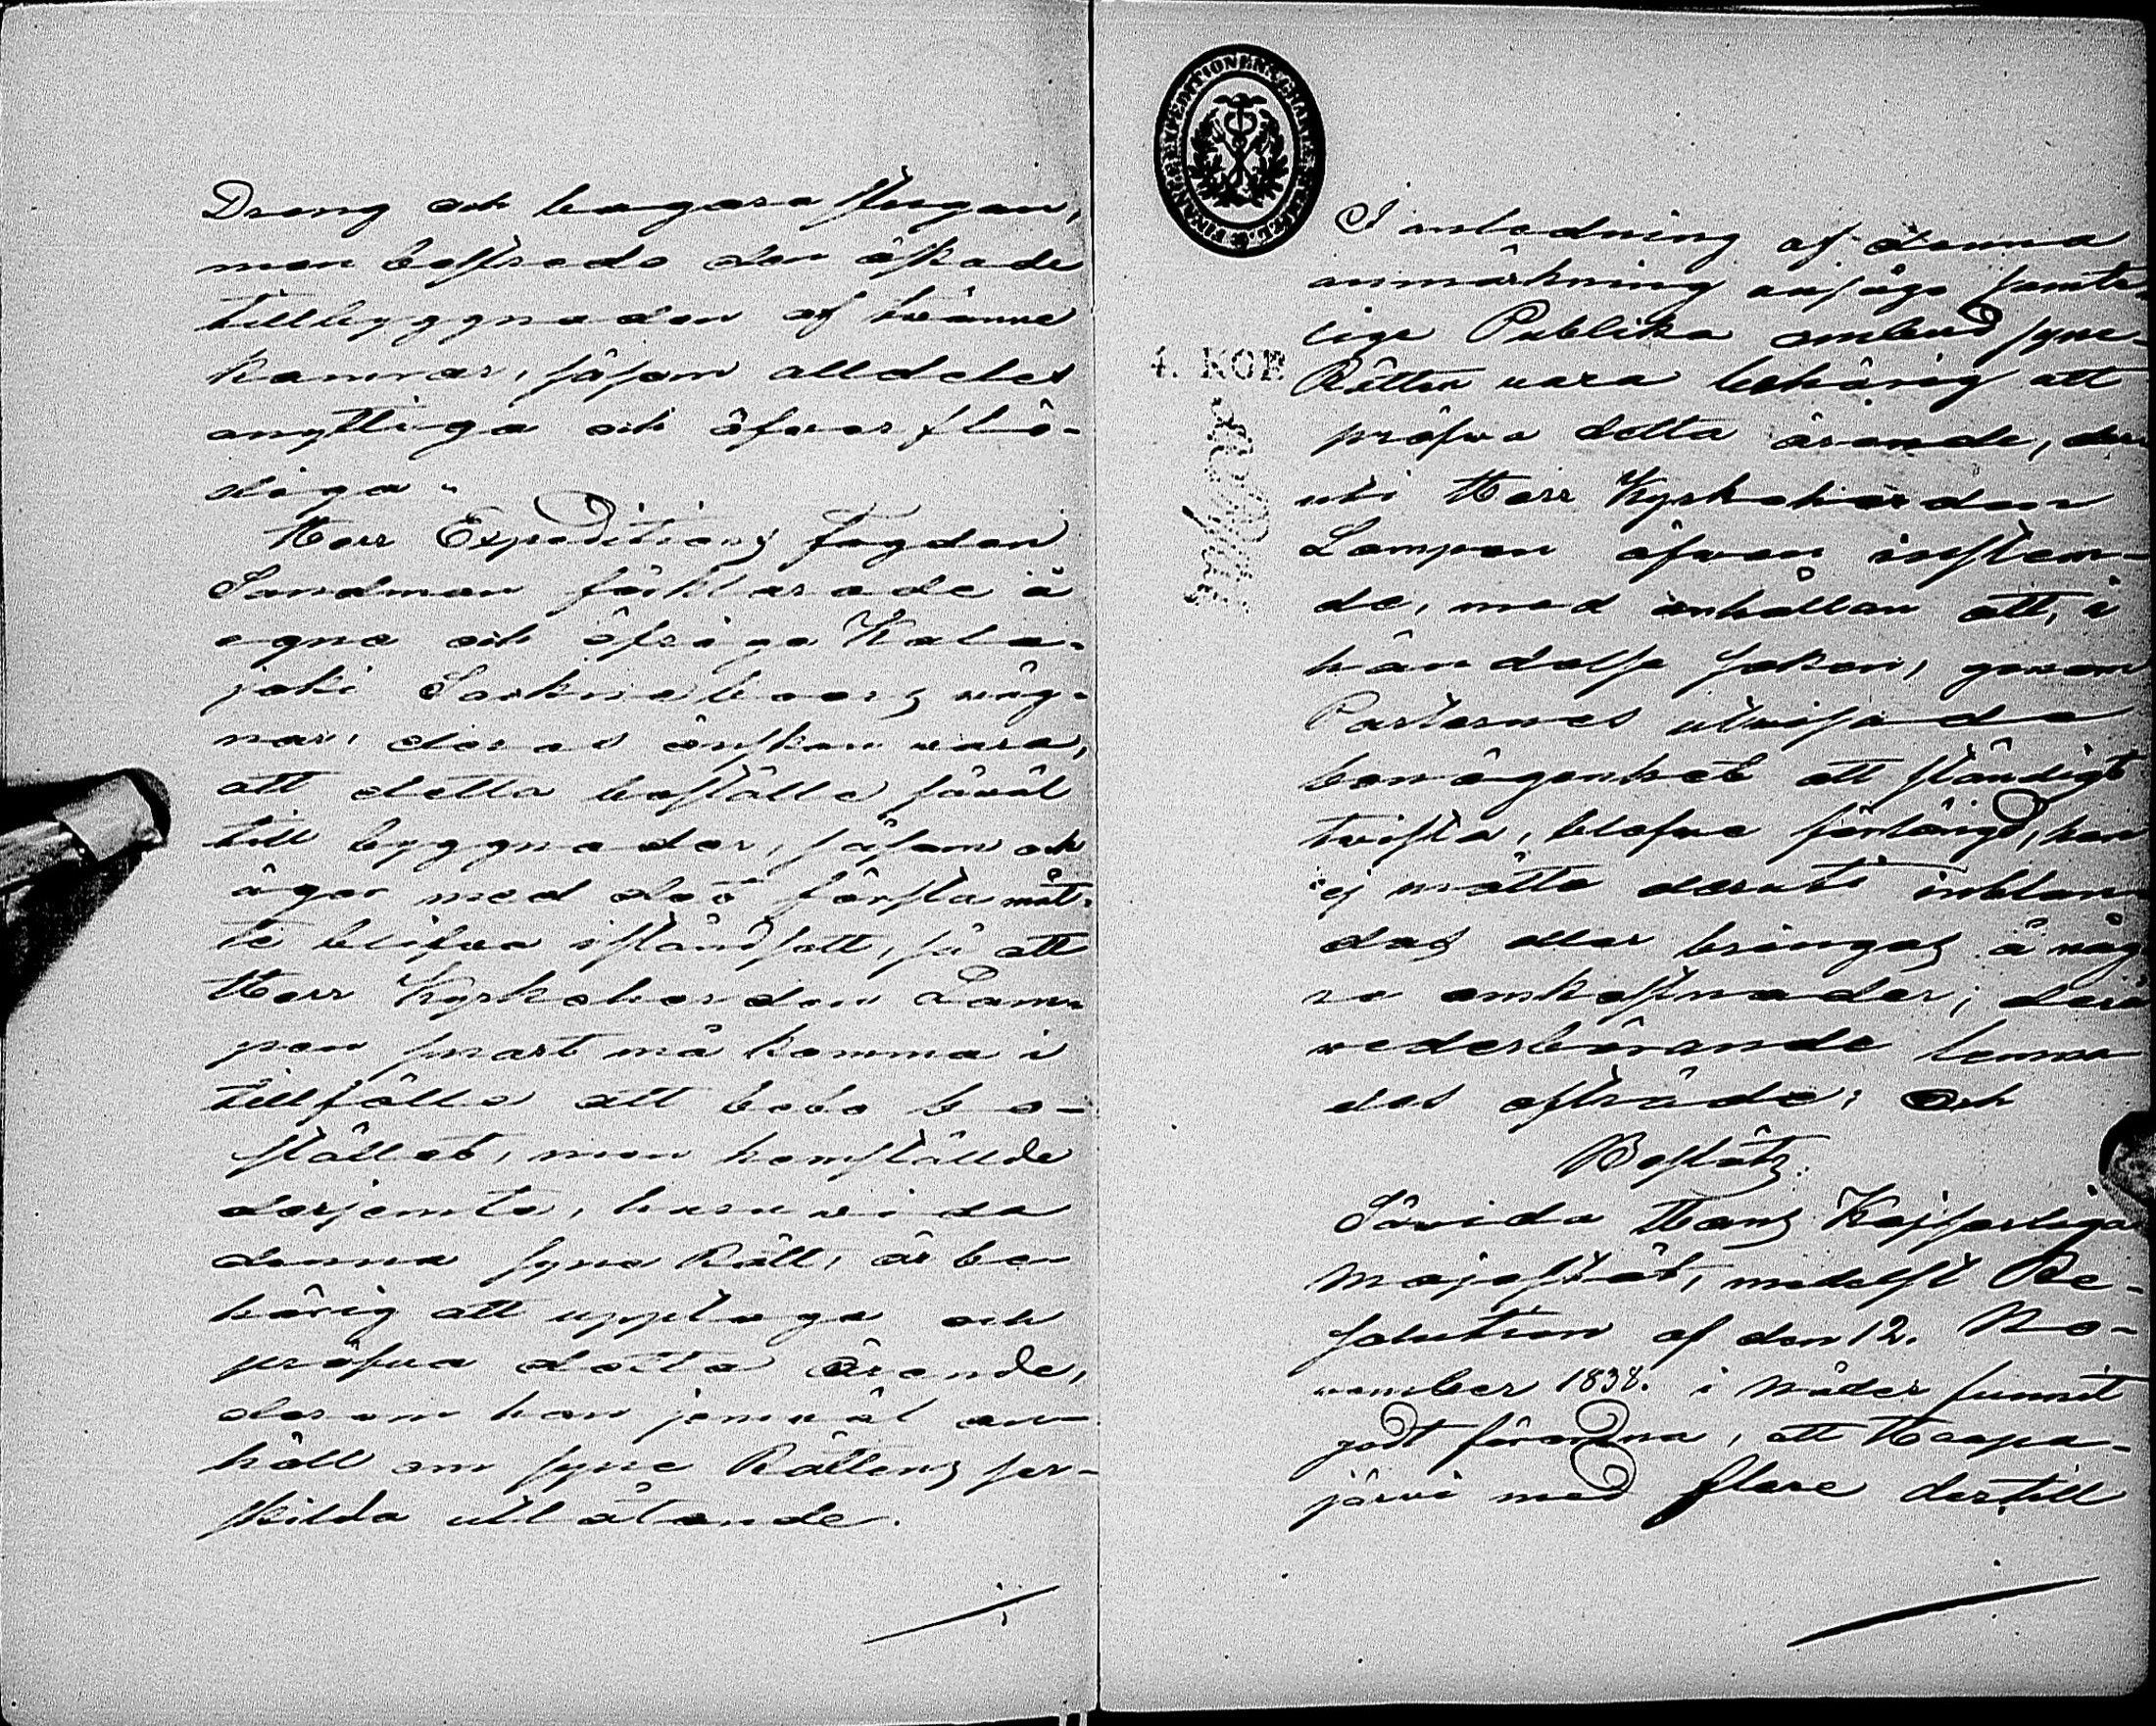 Dräng och bagare stugan,
men bestredo den äskade
tillbyggnaden af tränne
kamrar, såsom alldeles
onyttiga och öfverflö-
diga.
Herr Expeditions fogden
Sandman förklarade å
egne och öfriga Kala-
joki Sockneboers väg-
nar, deras önskan vara,
att detta boställe såväl
till byggnader, såsom ock
ägor med det första måt-
te blifva iståndsatt, så att
Herr Kyrkoherden Lam-
pen snart må komma i
tillfälle att bebo bo-
stället, men hemställde
derjemte, huruvida
denna Syne Rätt, är be-
hörig att upptaga och
pröfva detta ärende,
derom han jemväl an-
höll om Syne Rättens sär-
skilda utlåtande.
FINANCE EXPEDITIONENS CHARTÆ STÄMPEL
4. KOP
I anledning af denna
anmärkning ansågo samte-
lige Publika ombud Syne-
Rätten vara behörig att
pröfva detta ärende, der-
uti Herr Kyrkoherden
Lampen äfven instäm-
de, med anhållan att, i
händelse saken, genom
Parternes utvisade
benägenhet att ständigt
tvista, blefve förlängd, han
ej måtte deruti inblan-
das eller bringas i någ-
re omkostnader; derå
vederbörande lemna-
des afträde; Och
Beslöts:
Såvida Hans Kejserliga
Majestät, medelst Re-
solution af den 12. No-
vember 1838. i Nåder funnit
godt förordna, att Haapa-
järvi med flere dertill